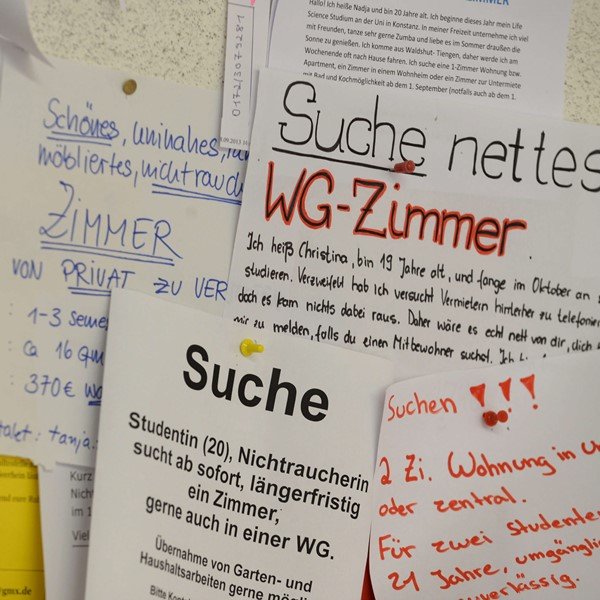 Hallo! Ich heiße Nadja und bin 20 Jahre alt. Ich beginne dieses Jahr mein Life
Science Studium an der Uni in Konstanz. In meiner Freizeit unternehme ich viel
mit Freunden, tanze sehr gerne Zumba und liebe es im Sommer draußen die
Sonne zu genießen. Ich komme aus Waldshut- Tiengen, daher werde ich am
Wochenende oft nach Hause fahren. Ich suche eine 1-Zimmer Wohnung bzw.
Apartment, ein Zimmer in einem Wohnheim oder ein Zimmer zur Untermiete
mit Bad und Kochmöglichkeit ab dem 1. September (notfalls auch ab dem 1.
Schönes, uninahes,
möbliertes, nichtrauch
ZIMMER
VON PRIVAT ZU VER
1-3 Seme
ca 16 qm
370€
tanja.
Suche nettes
WG-Zimmer
Ich heiß Christina, bin 19 Jahre alt, und fange im Oktober an
studieren. Verzweifelt hab ich versucht Vermietern hinterher zu telefonie
doch es kam nichts dabei raus. Daher wäre es echt nett von dir, dich
mir zu melden, falls du einen Mitbewohner suchst. Ich
Suche
Studentin (20), Nichtraucherin
sucht ab sofort, längerfristig
ein Zimmer,
gerne auch in einer WG.
Übernahme von Garten- und
Haushaltsarbeiten gerne
Bitte
Suchen !!!
2 Zi. Wohnung in
oder zentral.
Für zwei Studente
21 Jahre, umgänglic
Kurz
Nicht
im 1
Viel
gmx.de